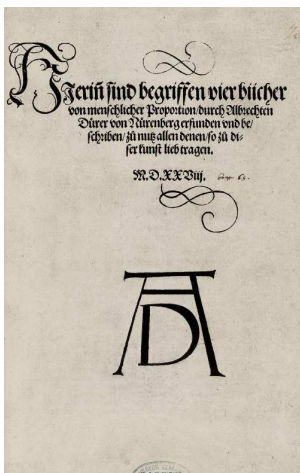 HJerinn sind begriffen vier bücher
von menschlicher Proportion/durch Albrechten
Dürer von Nürenberg erfunden vnd be/
schriben/zů nutz allen denen/so zů di-
ser kunst lieb tragen.
M.D.XXViij.
AD